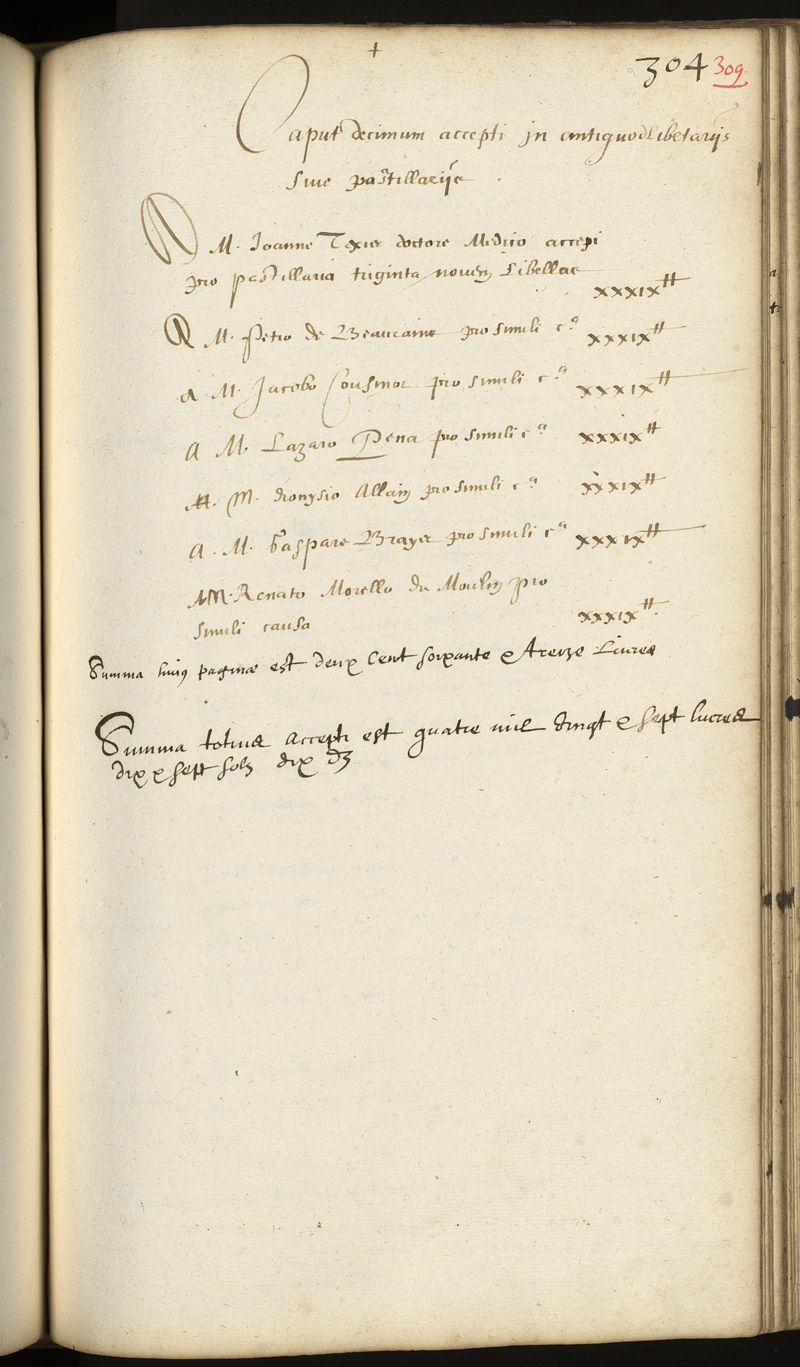 +
304 309.
Caput decimum accepti in antiquodlibetariis
sive pastillariis .
A M. Joanne Texier doctore Medico accepi
pro pastillaria triginta novem libellas
xxxix ₶
A M. Petro de Beauraine pro simili cᵃ xxxix ₶
A M. Jacobo Cousinot pro simili cᵃ xxxix ₶
A M. Lazaro Pena pro simili cᵃ xxxix ₶
A. M. dionysio Allain pro simili cᵃ xxxix ₶
A. M. Gaspare Brayer pro simili cᵃ xxxix ₶
A M. Renato Morello du Moulin pro
simili causa xxxix ₶
Summa huius paginæ est deux Cent soixante & treize Livres
Summa totius accepti est quatre mil vingt & sept livres
dix & sept solz dix dz